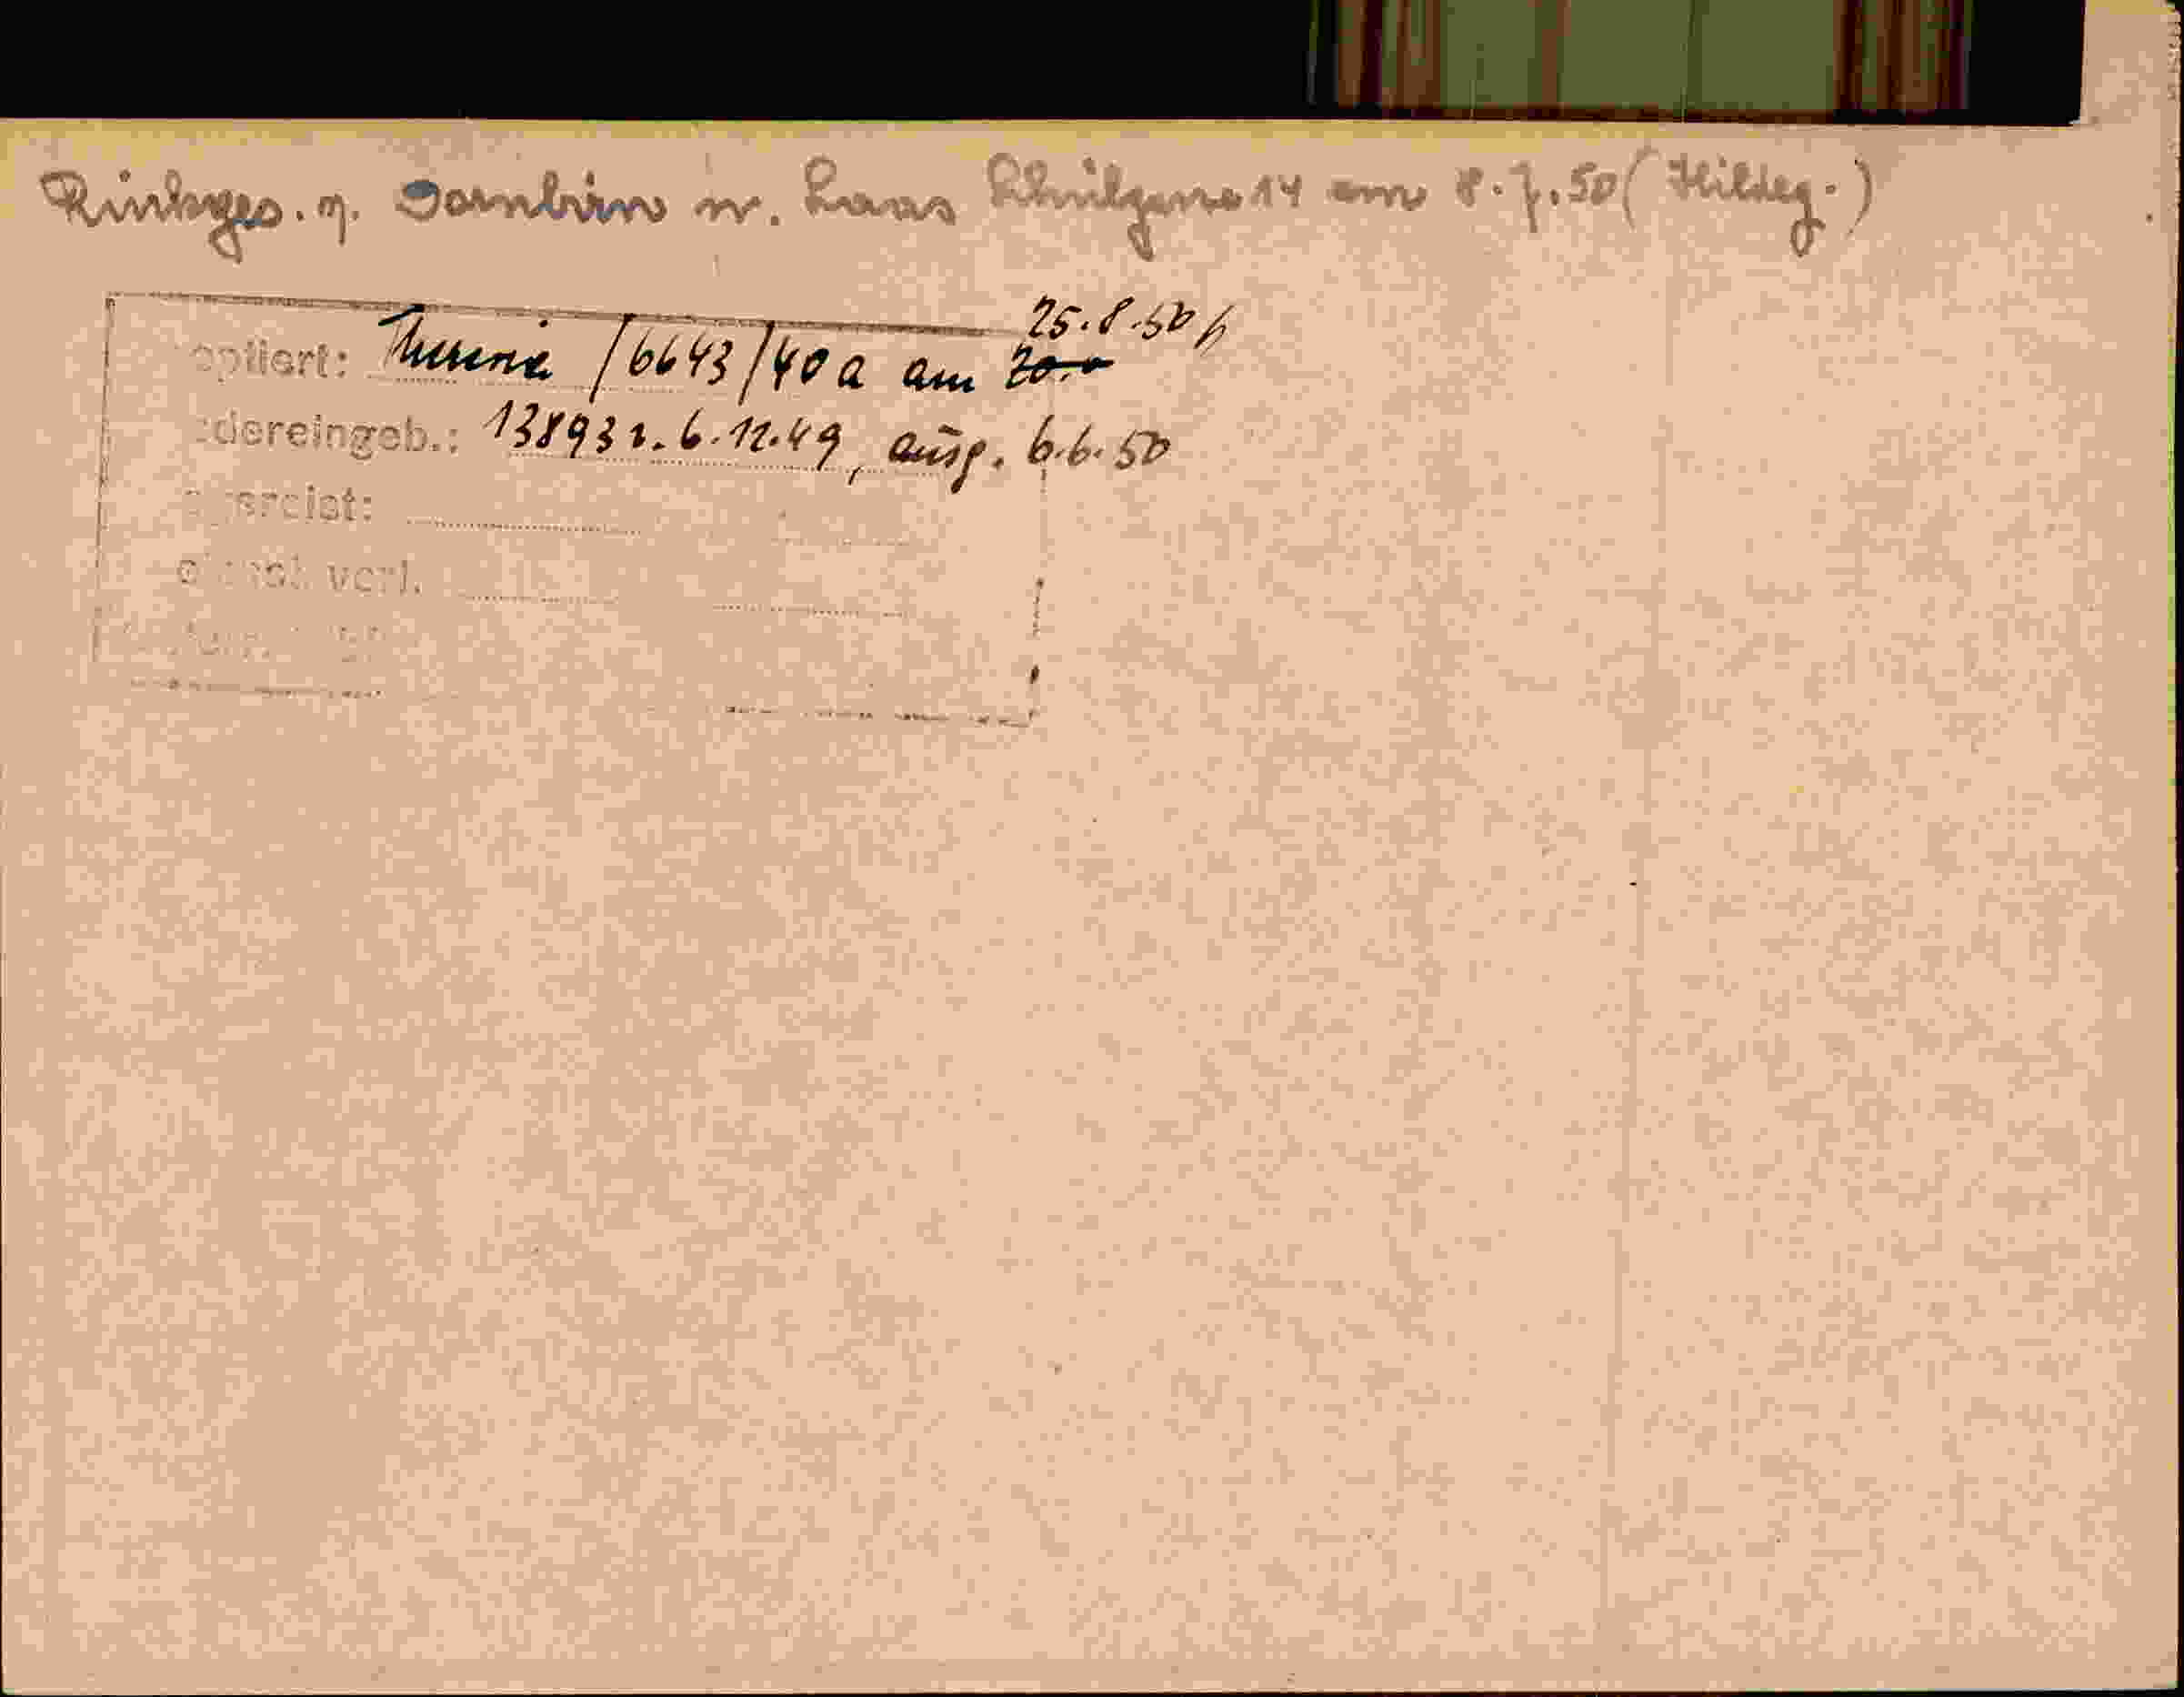 Rückges. v. Dornbirn n. Laas Schulgasse 14 am 8.7.50 (Hildeg.)
25.8.50
optiert: Theresia /6643/40a am 20.
dereingeb.: 138932. 6.12.49, ausg. 6.6.50
ereist:
verl.